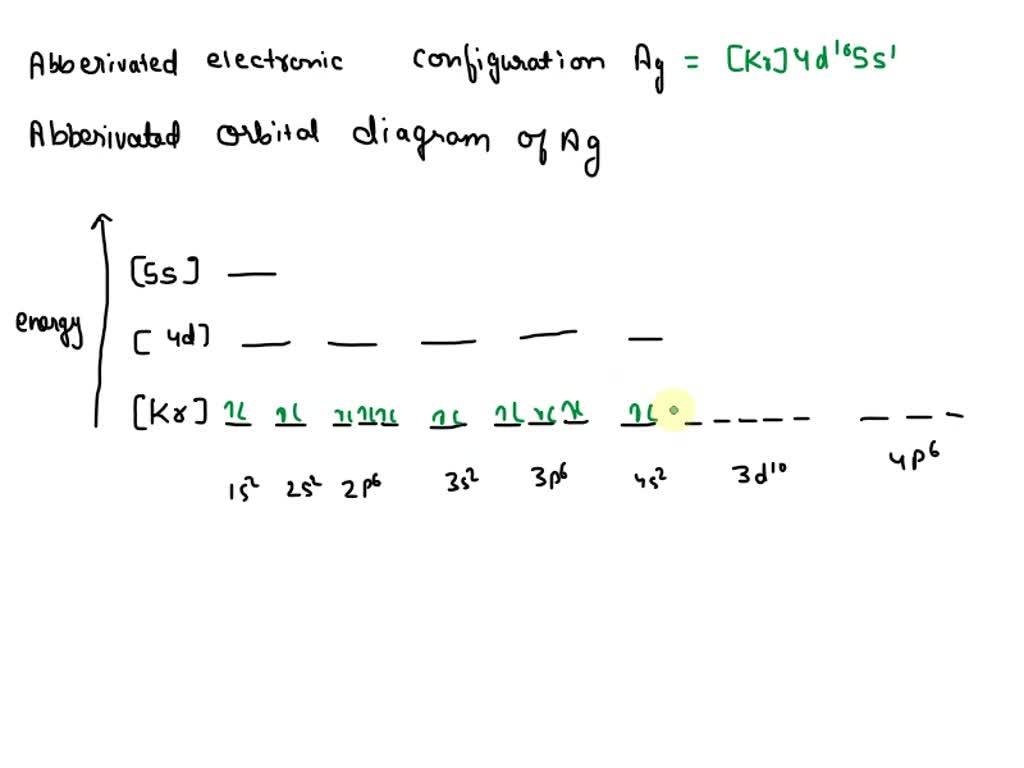 Abberivated electronic configuration Ag = [Kr] 4d¹⁰5s¹
Abberivated orbital diagram of Ag
[5s]
energy
[4d]
[Kr] 1L 1L 1L 1L 1L 1L 1L 1L 1L 1L
1s² 2s² 2p⁶ 3s² 3p⁶ 4s² 3d¹⁰ 4p⁶